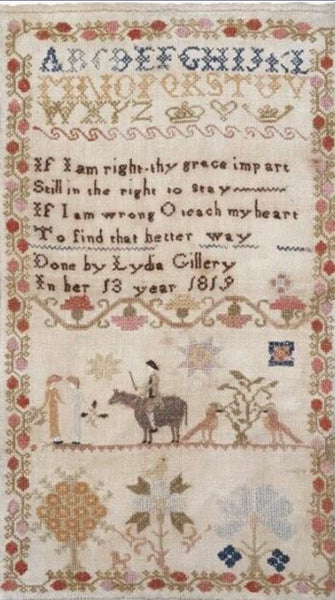 ABCDEFGHIJKL
MNOPQRSTUV
WXYZ
If I am right thy grace impart
Still in the right to stay
If I am wrong O teach my heart
To find that better way
Done by Lydia Gillery
In her 13 year 1819